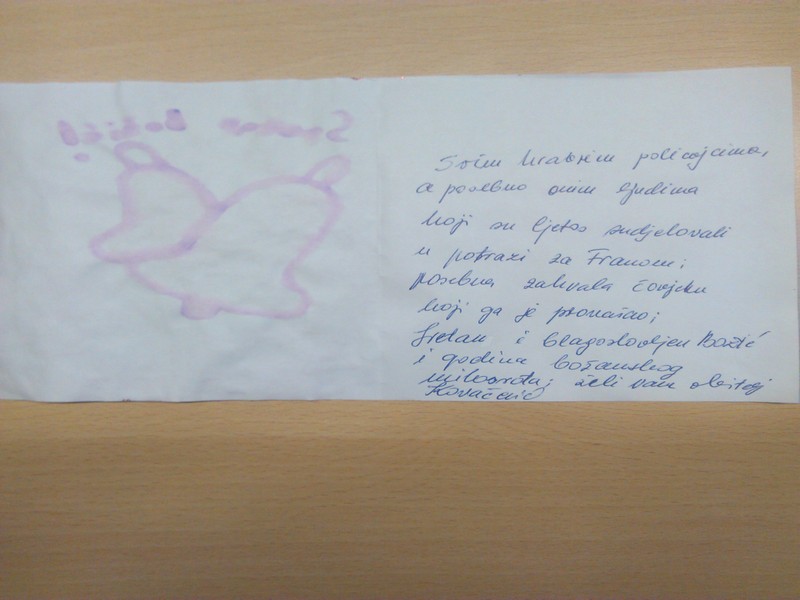 Svim hrabrim policajcima,
a posebno onim ljudima
koji su ljetos sudjelovali
u potrazi za Franom;
posebna zahvala čovjeku
koji ga je pronašao;
Sretan i blagoslovljen Božić
i godina božanskog
milosrđa, želi vam obitelj
Kovačević
Sretan Božić!